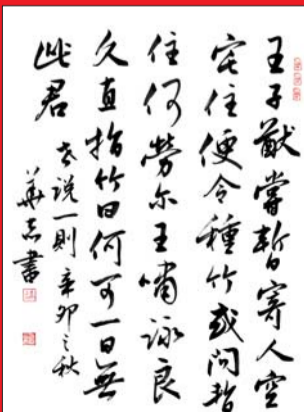 王子猷嘗暫寄人空
宅住便令種竹或問暫
住何勞尔王嘯詠良
久直指竹曰何可一日無
此君
世说一則 辛卯之秋
華志書